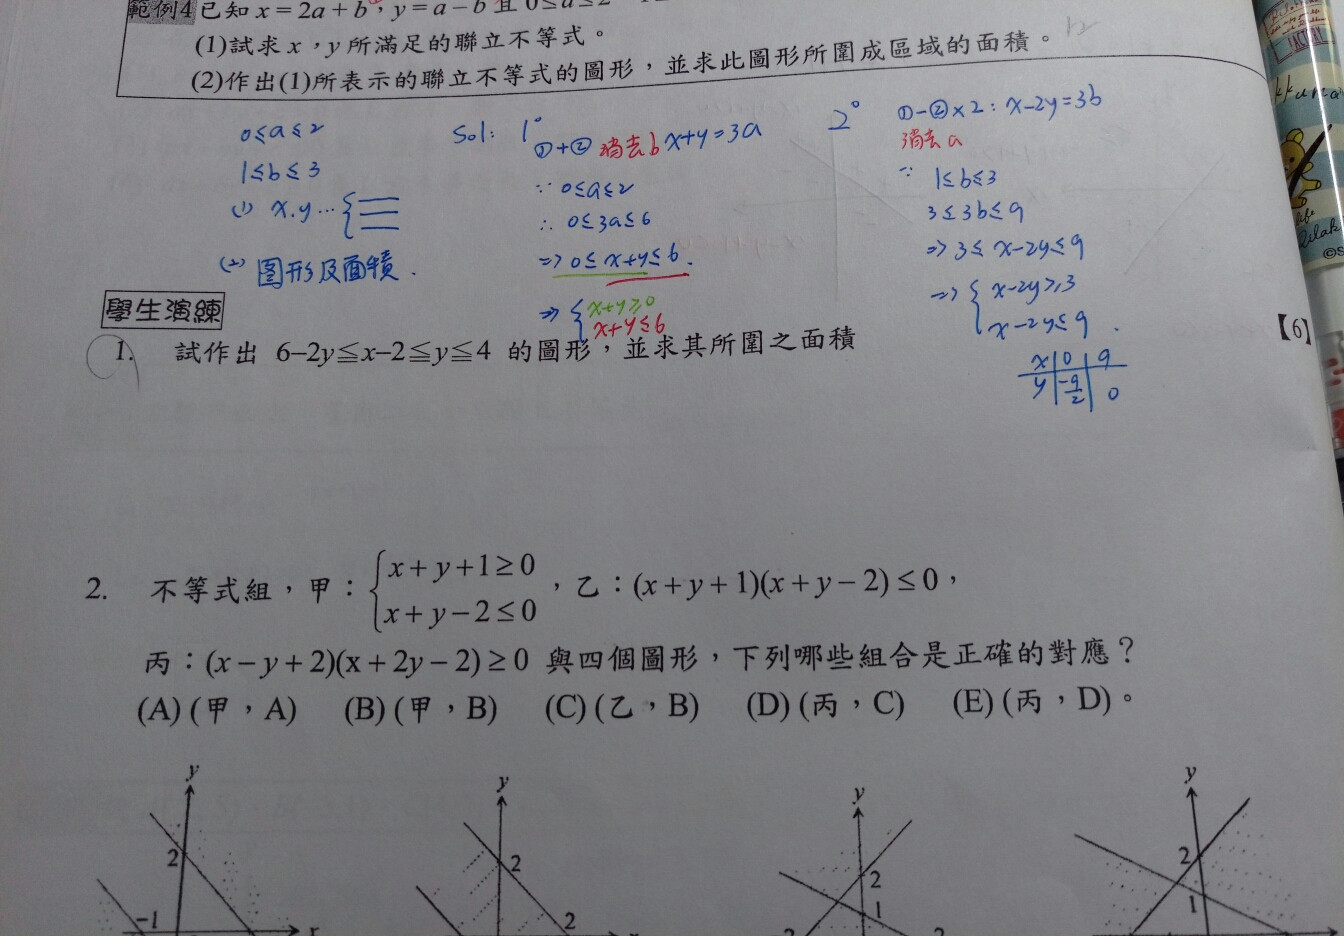 範例4 已知 x = 2a + b, y = a – b 且 0 ≤ a ≤ 2
(1)試求 x,y 所滿足的聯立不等式。
(2)作出(1)所表示的聯立不等式的圖形,並求此圖形所圍成區域的面積。
0≤a≤2
1≤b≤3
(1) x.y … {
(2) 圖形及面積.
Sol: 1°
①+② 消去b x+y=3a
∵ 0≤a≤2
∴ 0≤3a≤6
=> 0≤x+y≤6.
=> { x+y≥0
x+y≤6
2° ①-②×2: x-2y=3b
消去 a
∵ 1≤b≤3
3≤3b≤9
=> 3≤x-2y≤9
=> { x-2y≥3
x-2y≤9.
x 0 9
y -9/2 0
學生演練
1. 試作出 6–2y≦x–2≦y≦4 的圖形,並求其所圍之面積
【6】
2. 不等式組,甲:{ x + y + 1 ≥ 0
x + y – 2 ≤ 0 ,乙:(x + y + 1)(x + y – 2) ≤ 0,
丙:(x – y + 2)(x + 2y – 2) ≥ 0 與四個圖形,下列哪些組合是正確的對應?
(A) (甲,A) (B) (甲,B) (C) (乙,B) (D) (丙,C) (E) (丙,D)。
y
2
–1
x
y
2
2
y
2
1
y
2
1